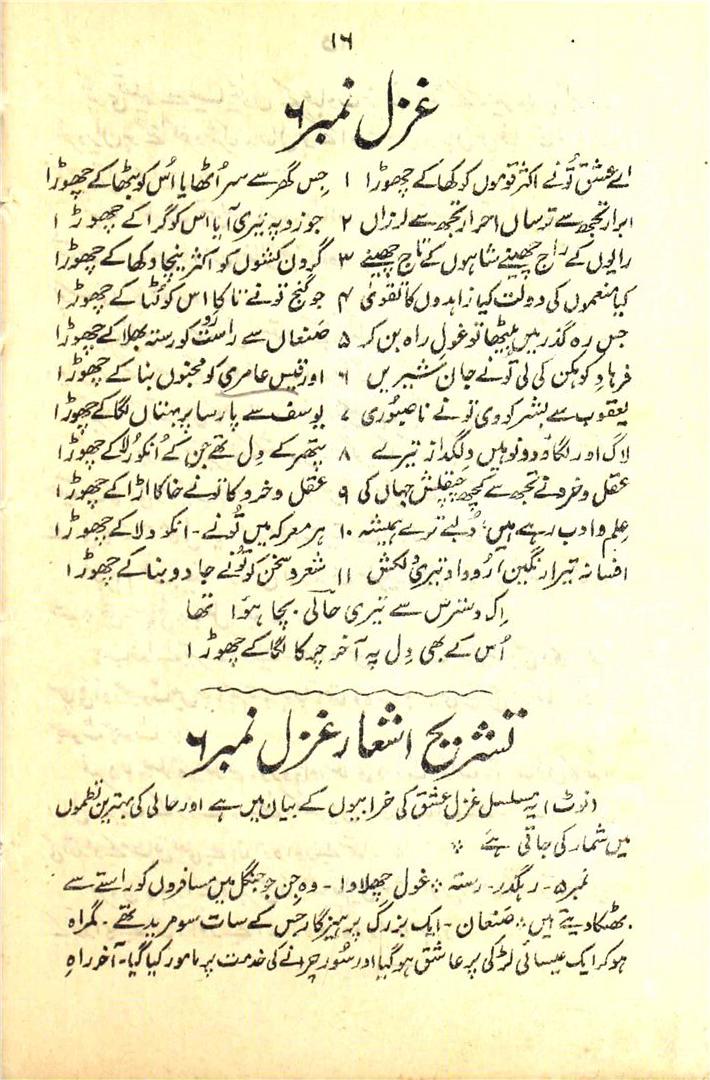 ۱۶
غزل نمبر ۶
اے عشق تُونے اکثر قوموں کو کھا کے چھوڑا ۱ جس گھر سے سر اُٹھایا اُس کو بٹھا کے چھوڑا
ابرار تجھ سے ترساں احرار تجھ سے لرزاں ۲ جو زد پہ تیری آیا اس کو گرا کے چھوڑا
رایوں کے راج چھینے شاہوں کے تاج چھینے ۳ گردن کشوں کو اکثر نیچا دکھا کے چھوڑا
کیا منعموں کی دولت کیا زاہدوں کا تقویٰ ۴ جو گنج تو نے تاکا اس کو لُٹا کے چھوڑا
جس رہ گذر میں بیٹھا تو غول راہ بن کر ۵ صنعاں سے راست رَو کو رستہ بھلا کے چھوڑا
فرہادِ کوہکن کی لی تونے جان شیریں ۶ اور قیس عامری کو مجنوں بنا کے چھوڑا
یعقوب سے بشر کو دی تو نے ناصبُوری ۷ یوسف سے پارسا پر بہتاں لگا کے چھوڑا
لاگ اور لگاؤ دونو ہیں دلگداز تیرے ۸ پتھر کے دِل تھے جن کے اُنکو رُلا کے چھوڑا
عقل و خرد نے تجھ سے کچھ چپقلش جہاں کی ۹ عقل و خرد کا تو نے خاکا اڑا کے چھوڑا
علِم و ادب رہے ہیں؛ دَبے ترے ہمیشہ ۱۰ ہر معرکہ میں تُونے - انکو دلا کے چھوڑا
افسانہ تیرا رنگین، رُوداد تیری دلکش ۱۱ شعر و سخن کو تُونے جادو بنا کے چھوڑا
اِک دسترس سے تیری حاؔلی بچا ہوُا تھا
اُس کے بھی دِل پہ آخر چرکا لگا کے چھوڑا
تشریح اشعار غزل نمبر ۶
(نوٹ) یہ مسلسل غزل عشق کی خرابیوں کے بیان میں ہے اور حالی کی بہترین نظموں
میں شمار کی جاتی ہَے ⁘
نمبر ۵ - رہگذر - رستہ ⁘ غول چھلاوا - وہ جن جو جنگل میں مسافروں کو راستے سے
بھٹکا دیتے ہیں ⁘ صَنعان - ایک بزرگ پرہیزگار جس کے سات سو مرید تھے - گمراہ
ہو کر ایک عیسائی لڑکی پر عاشق ہو گیا اور سُور چرانے کی خدمت پر مامور کیا گیا - آخر راہِ